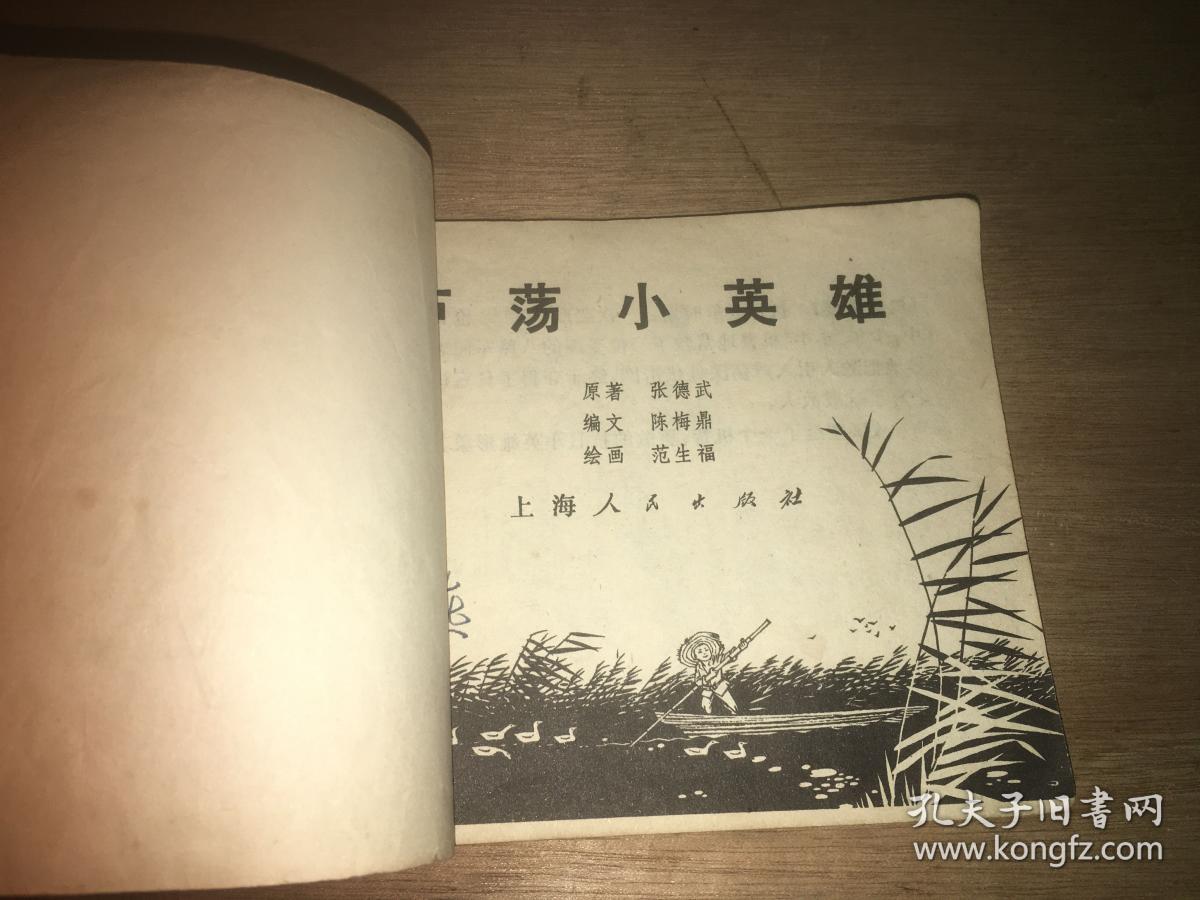 荡小英雄
原著 张德武
编文 陈梅鼎
绘画 范生福
上海人民出版社
孔夫子旧书网
www.kongfz.com